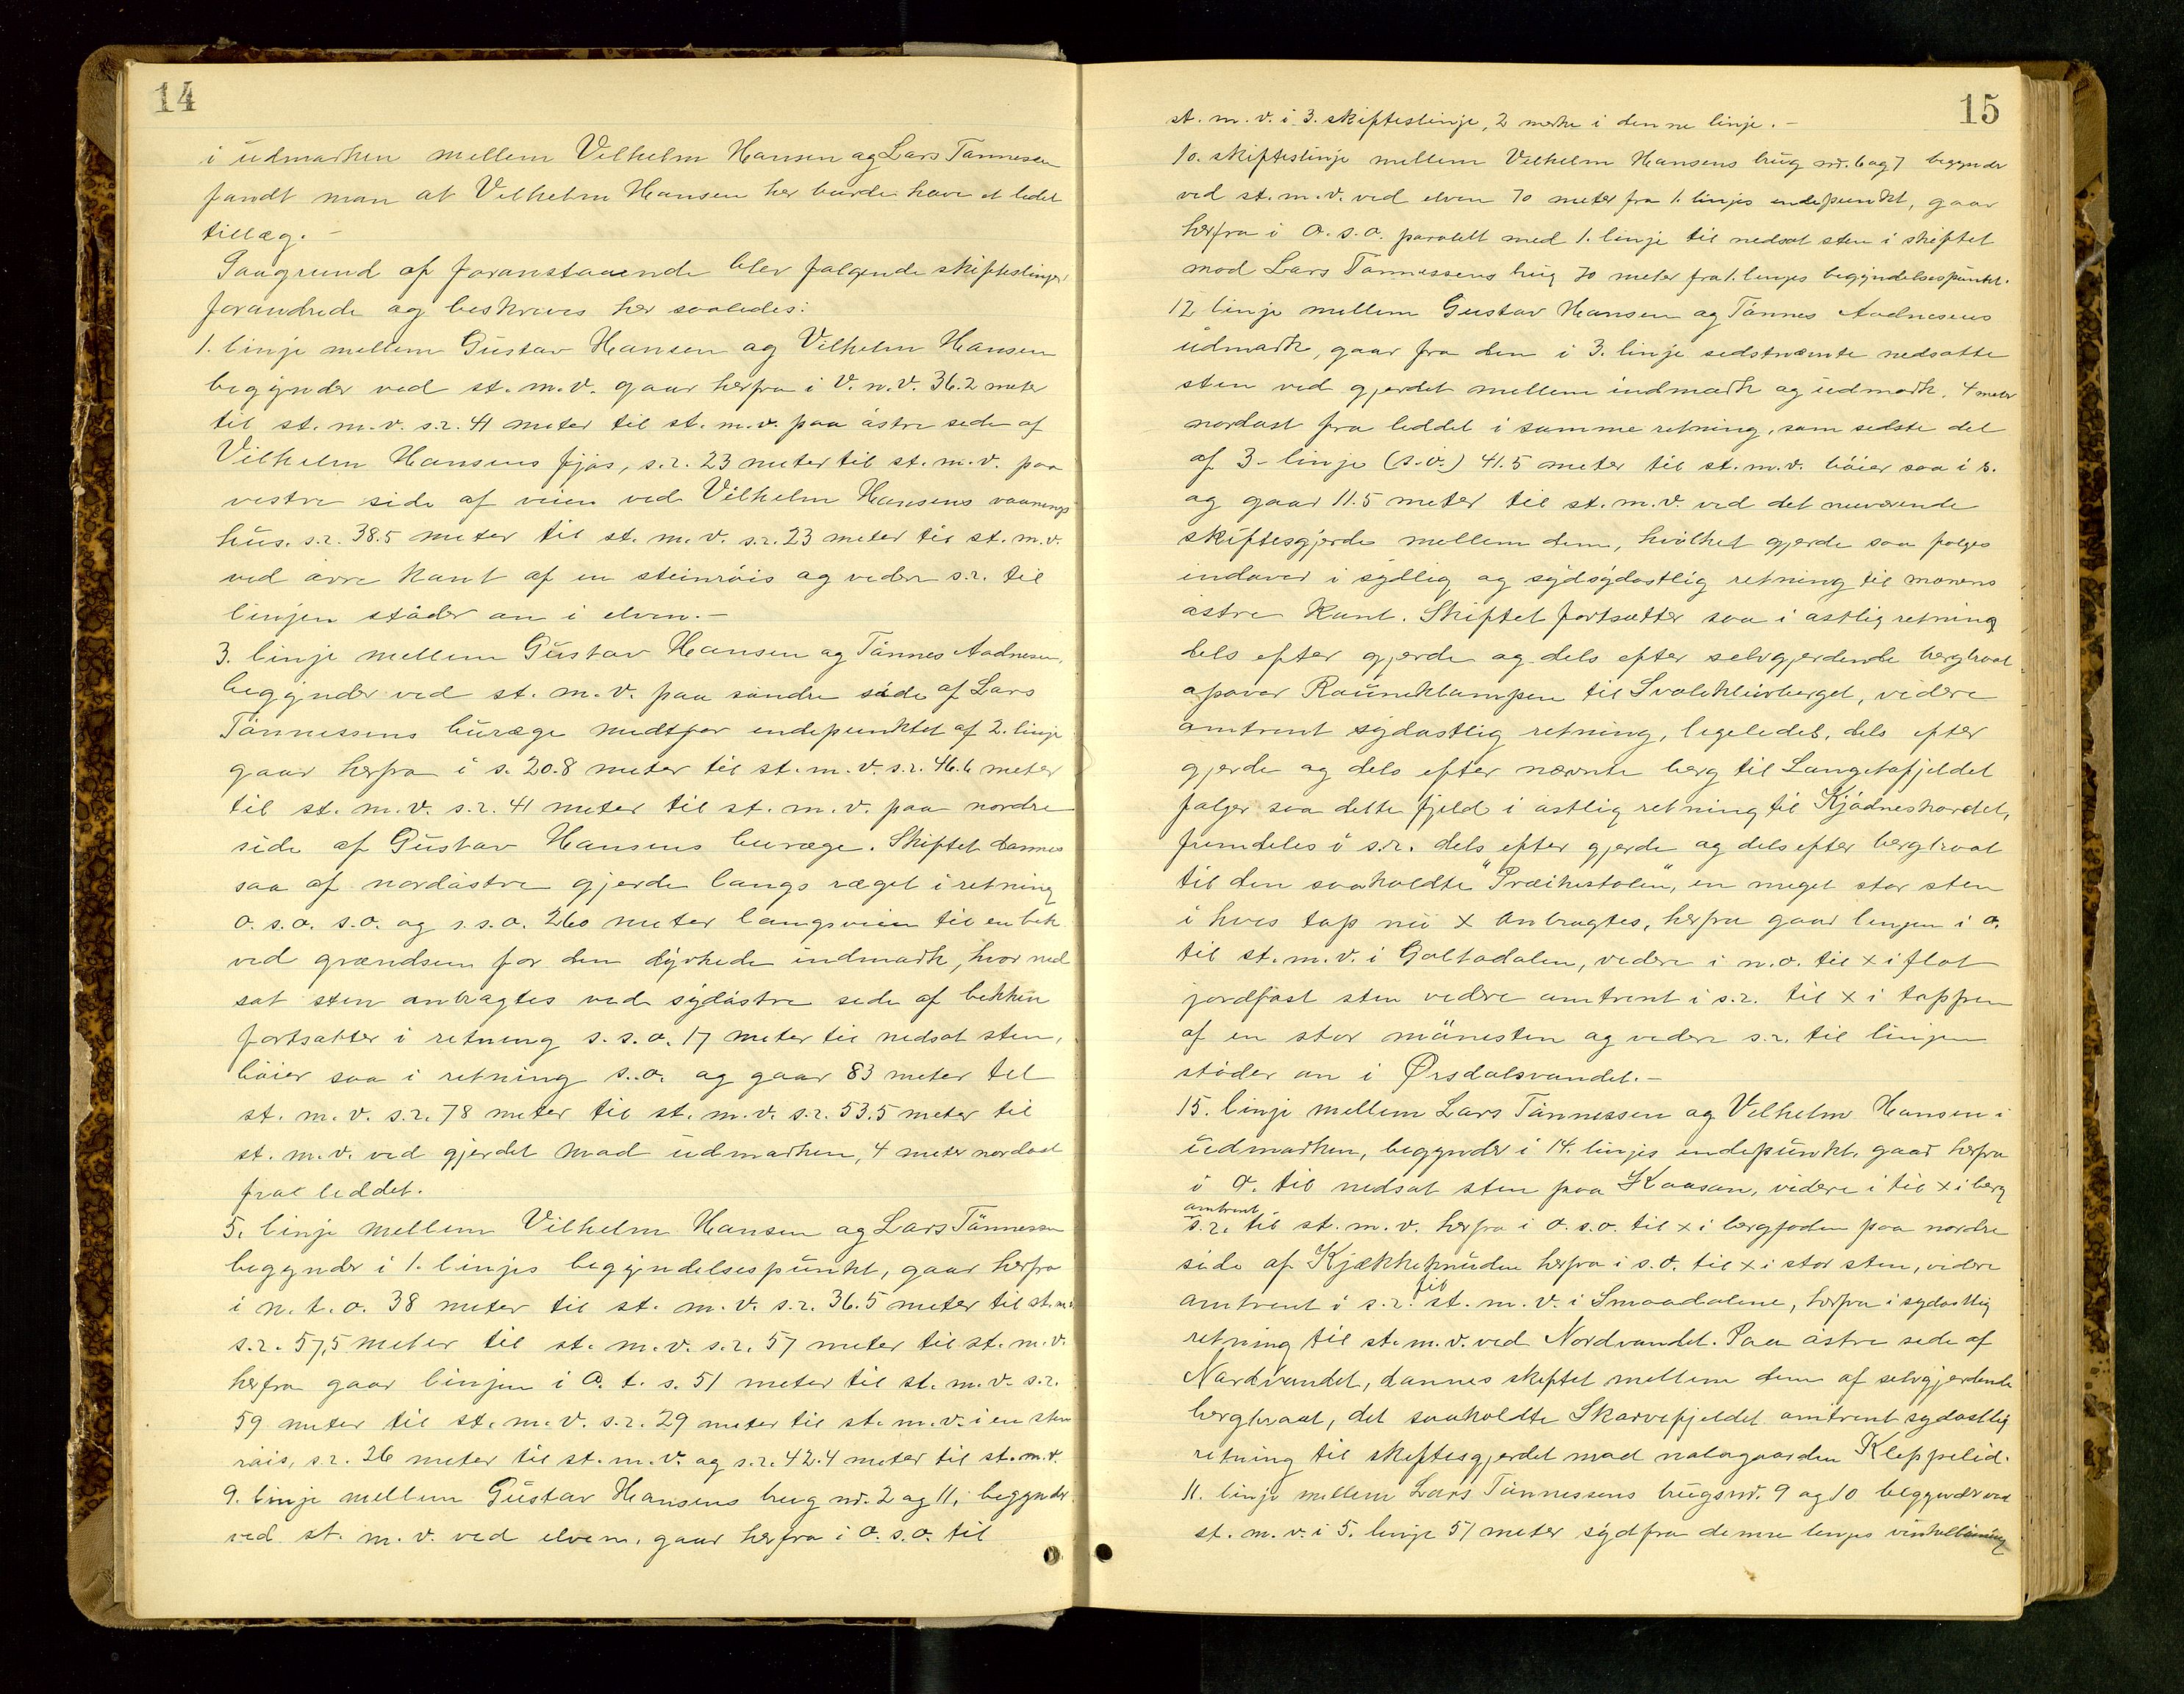 14
i udmarken mellem Vilhelm Hansen og Lars Tønnesen
fandt man at Vilhelm Hansen her burde have et lidet
tillæg. –
Paagrund af foranstaaende blev følgende skifteslinjer
forandrede og beskrives her saaledes:
1. linje mellem Gustav Hansen og Vilhelm Hansen
begynder ved st. m. v. gaar herfra i V. n. v. 36.2 meter
til st. m. v. s. r. 41 meter til st. m. v. paa østre side af
Vilhelm Hansens fjøs, s. r. 23 meter til st. m. v. paa
vestre side af veien ved Vilhelm Hansens vaanings
hus. s. r. 38.5 meter til st. m. v. s. r. 23 meter til st. m. v.
ved øvre kant af en steinrøis og videre s. r. til
linjen støder an i elven. –
3. linje mellem Gustav Hansen og Tønnes Aadnesen,
begynder ved st. m. v. paa søndre side af Lars
Tønnessens buræge midtfor endepunktet af 2. linje
gaar herfra i s. 20.8 meter til st. m. v. s. r. 46.6 meter
til st. m. v. s. r. 41 meter til st. m. v. paa nordre
side af Gustav Hansens buræge. Skiftet dannes
saa af nordøstre gjerde langs ræget i retning
o. s. o. s. o. og s. s. o. 260 meter langs veien til en bek
ved grændsen for den dyrkede indmark, hvor ned
sat sten anbragtes ved sydøstre side af bekken
fortsætter i retning s. s. o. 17 meter til nedsat sten,
bøier saa i retning s. o. og gaar 83 meter til
st. m. v. s. r. 78 meter til st. m. v. s. r. 53.5 meter til
st. m. v. ved gjerdet mod udmarken, 4 meter nordost
fra leddet.
5. linje mellem Vilhelm Hansen og Lars Tønnessen
begynder i 1. linjes begyndelsespunkt, gaar herfra
i n. t. o. 38 meter til st. m. v. s. r. 36.5 meter til st. m. v.
s. r. 57,5 meter til st. m. v. s. r. 57 meter til st. m. v.
herfra gaar linjen i O. t. s. 51 meter til st. m. v. s. r.
59 meter til st. m. v. s. r. 29 meter til st. m. v. i en sten
røis, s. r. 26 meter til st. m. v. og s. r. 42.4 meter til st. m. v.
9. linje mellem Gustav Hansens brug nr. 2 og 11, begynder
ved st. m. v. ved elven, gaar herfra i o. s. o. til
15
st. m. v. i 3. skifteslinje, 2 merke i denne linje. –
10. skifteslinje mellem Vilhelm Hansens brug nr. 6 og 7 begynder
ved st. m. v. ved elven 70 meter fra 1. linjes endepunkt, gaar
herfra i o. s. o. paralelt med 1. linje til nedsat sten i skiftet
mod Lars Tønnessens brug 70 meter fra 1. linjes begyndelsespunkt.
12. linje mellem Gustav Hansen og Tønnes Aadnesens
udmark, gaar fra den i 3. linje sidstnævnte nedsatte
sten ved gjerdet mellem indmark og udmark, 4 meter
nordost fra leddet i samme retning, som sidste del
af 3– linje (s. o.) 41.5 meter til st. m. v. bøier saa i s.
og gaar 11.5 meter til st. m. v. ved det nuværende
skiftesgjerde mellem dem, hvilket gjerde saa følges
indover i sydlig og sydsydostlig retning til morens
østre kant. Skiftet fortsætter saa i østlig retning
dels efter gjerde og dels efter selvgjerdende bergkvat
opover Rauneklampen til Svaleklivberget, videre
omtrent sydostlig retning, ligeledes, dels efter
gjerde og dels efter nævnte berg til Langetofjeldet
følger saa dette fjeld i østlig retning til Kjødneskordet,
fremdeles i s. r. dels efter gjerde og dels efter bergkvat
til den saakaldte "Præikestolen", en meget stor sten
i hvis top nu x anbragtes, herfra gaar linjen i o.
til st. m. v. i Goltadalen, videre i n. o. til x i flat
jordfast sten videre omtrent i s. r. til x i toppen
af en stor månesten og videre s. r. til linjen
støder an i Ørsdalsvandet. –
15. linje mellem Lars Tønnessen og Vilhelm Hansen i
udmarken, begynder i 14. linjes endepunkt, gaar herfra
i O. til nedsat sten paa Kaasan, videre i til x i berg
omtrent
s. r. til st. m. v. herfra i o. s. o. til x i bergfoden paa nordre
side af Kjækkeknuden herfra i s. o. til x i stor sten, videre
omtrent i s. r. til st. m. v. i Smaadalene, herfra i sydostlig
retning til st. m. v. ved Nordvandet. Paa østre side af
Nordvandet, dannes skiftet mellem dem af selvgjerdende
bergkvat, det saakaldte Skarvefjeldet omtrent sydostlig
retning til skiftesgjerdet mod nabogaarden Kleppelid.
11. linje mellem Lars Tønnessens brugsnr. 9 og 10 begynder ved
st. m. v. i 5. linje 51 meter syd fra denne linjes vinkelbøining